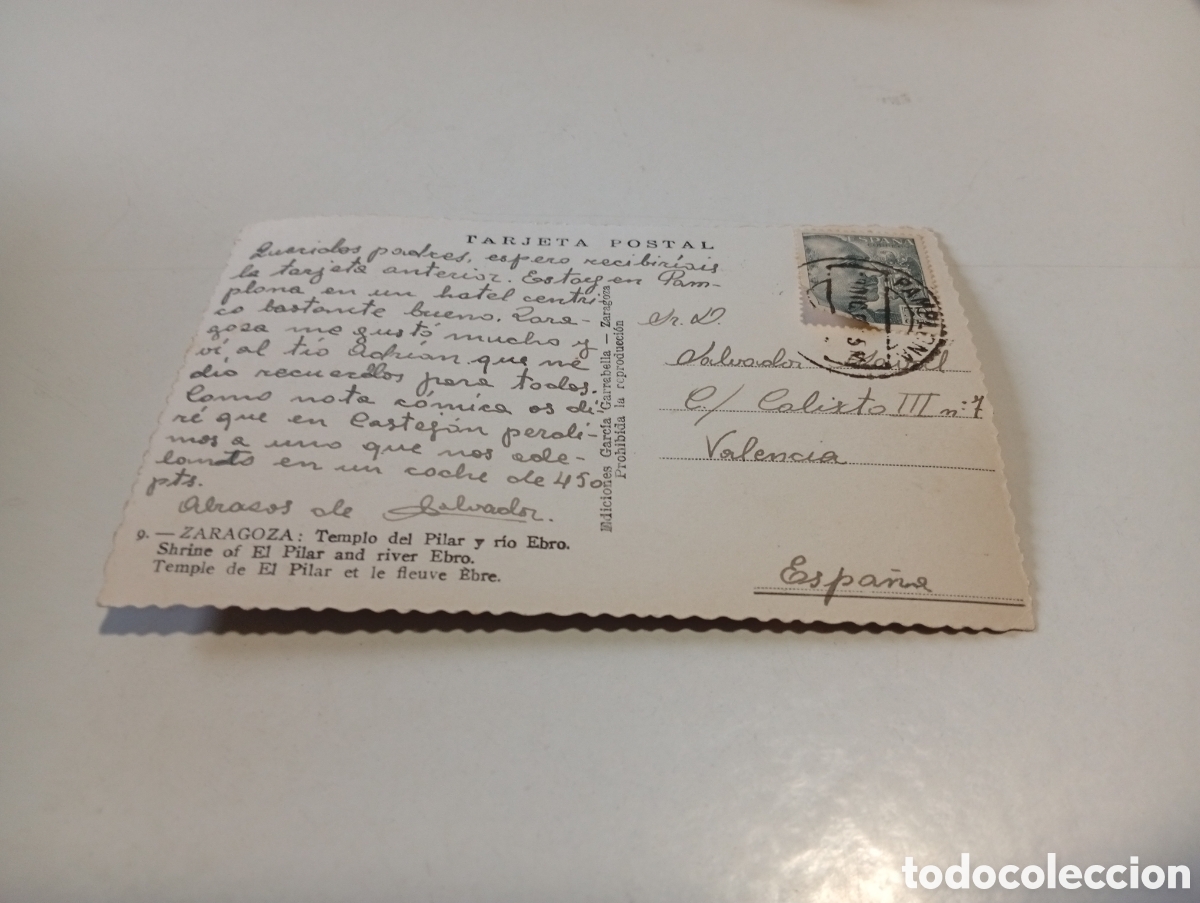 TARJETA POSTAL
Queridos padres, espero recibiríais
la tarjeta anterior. Estoy en Pam-
plona en un hotel céntri-
co bastante bueno. Zara-
goza me gustó mucho y
vi al tío Adrián que me
dio recuerdos para todos.
Como nota cómica os di-
ré que en Castejón perdi-
mos a uno que nos ade-
lanto en un coche de 450
pts.
Abrazos de Salvador.
9. — ZARAGOZA: Templo del Pilar y río Ebro.
Shrine of El Pilar and river Ebro.
Temple de El Pilar et le fleuve Èbre.
Ediciones García Garrabella — Zaragoza
Prohibida la reproducción
ESPAÑA
PAMPLONA
Sr. D.
Salvador
C/ Calixto III nº 7
Valencia
España
todocoleccion